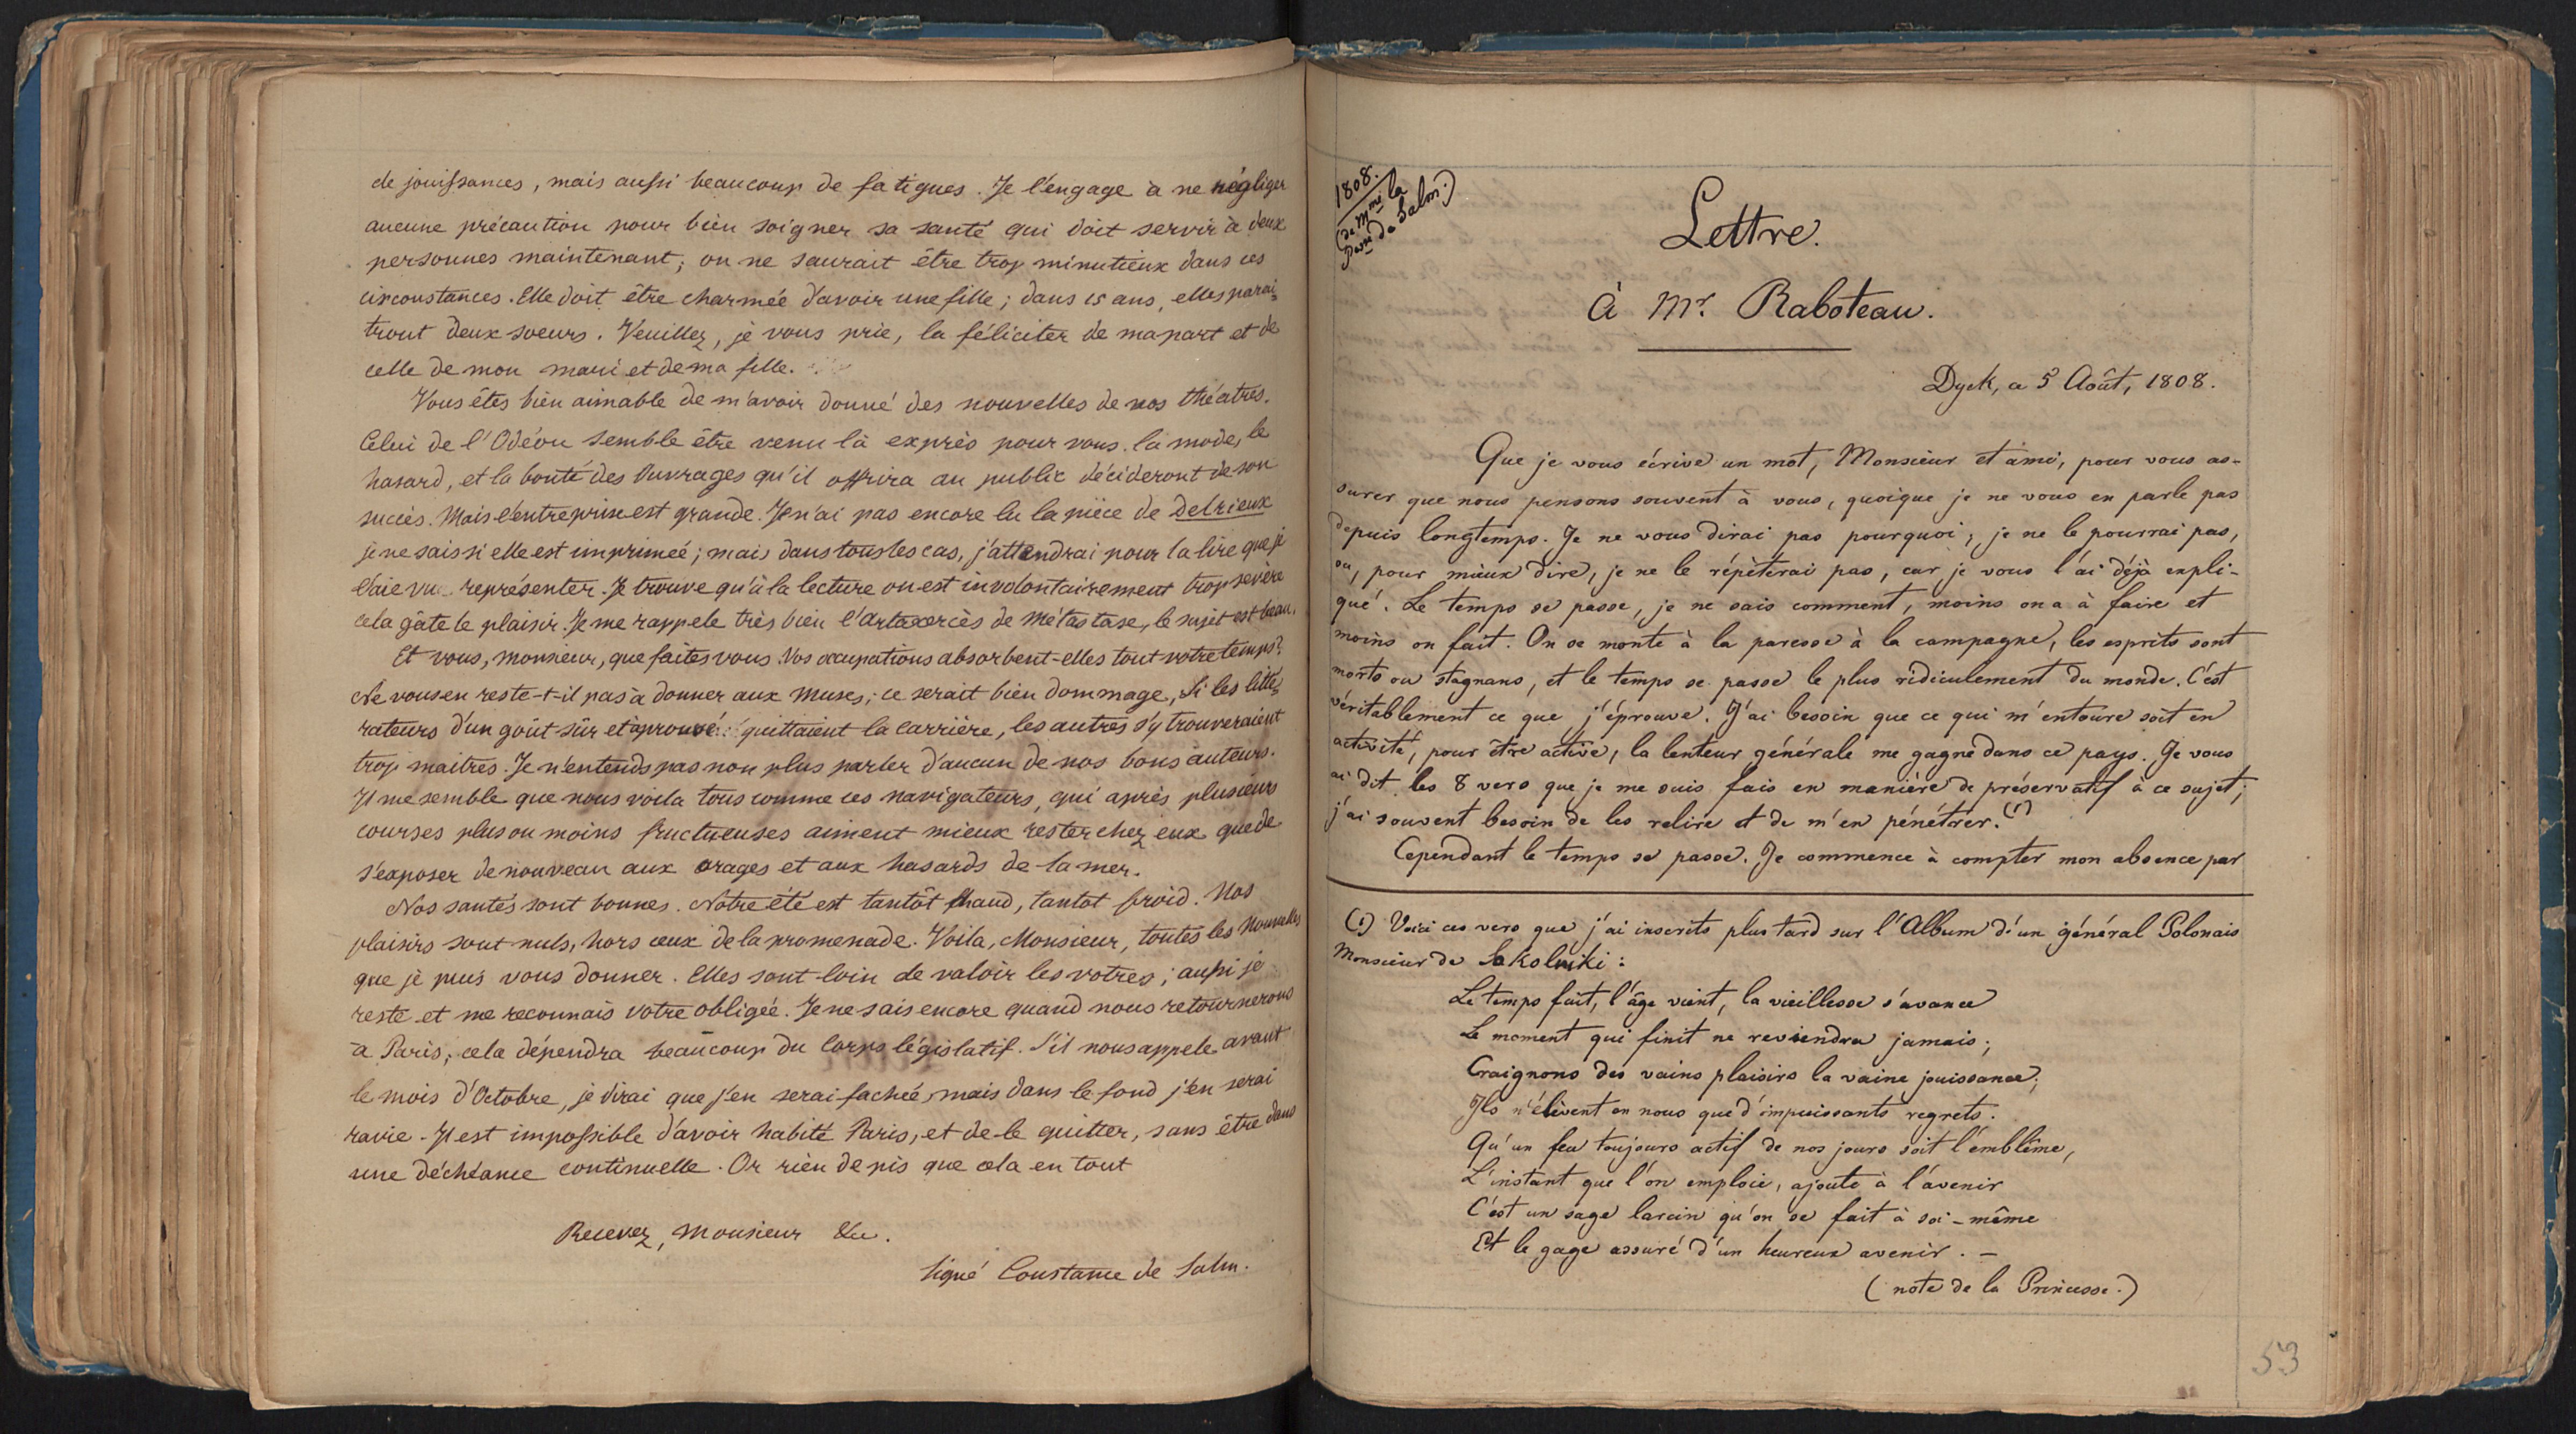 de jouissances, mais aussi beaucoup de fatigues. Je l'engage à ne négliger
aucune précaution pour bien soigner sa santé qui doit servir à deux
personnes maintenant; on ne saurait être trop minutieux dans ces
circonstances. Elle doit être charmée d'avoir une fille; dans 15 ans, elles parai=
tront deux soeurs. Veuillez, je vous prie, la féliciter de ma part et de
celle de mon mari et de ma fille.
Vous êtes bien aimable de m'avoir donné des nouvelles de nos théatres.
Celui de l'Odéon semble être venu là exprès pour vous. la mode, le
hasard, et la bonté des Ouvrages qu'il offrira au public décideront de son
succès. Mais l'entreprise est grande. Je n'ai pas encore lu la pièce de Delrieux
je ne sais si elle est imprimeé; mais dans tous les cas, j'attendrai pour la lire que je
l'aie vu représenter. Je trouve qu'à la lecture on est involontairement trop sevère
cela gâte le plaisir. Je me rappele très bien l'Artaxercès de Métastase, le sujet est beau.
Et vous, monsieur, que faites vous. Vos occupations absorbent-elles tout votre temps?
Ne vous en reste-t-il pas à donner aux muses; ce serait bien dommage, Si les litté=
rateurs d'un goût sûr et éprouvé quittaient la carrière, les autres s'y trouveraient
trop maitres. Je n'entends pas non plus parler d'aucun de nos bons auteurs.
Il me semble que nous voila tous comme ces navigateurs, qui après plusieurs
courses plus ou moins fructueuses aiment mieux rester chez eux que de
s'exposer de nouveau aux orages et aux hasards de la mer.
Nos santés sont bonnes. Notre été est tantôt chaud, tantot froid. Nos
plaisirs sont nuls, hors ceux de la promenade. Voila, Monsieur, toutes les Nouvelles
que je puis vous donner. Elles sont loin de valoir les votres; aussi je
reste et me reconnais votre obligée. Je ne sais encore quand nous retournerons
à Paris, cela dépendra beaucoup du Corps législatif. S'il nous appele avant
le mois d'Octobre, je dirai que j'en serai fachée, mais dans le fond j'en serai
ravie. Il est impossible d'avoir habité Paris, et de le quitter, sans être dans
une déchéance continuelle. Or rien de pis que cela en tout
Recevez, Monsieur &c.
Signé Constance de Salm.
1808.
(de Mme la
Psse de Salm.)
Lettre.
à Mr. Raboteau.
Dyck, ce 5 Août, 1808.
Que je vous écrive un mot, Monsieur et ami, pour vous as-
surer que nous pensons souvent à vous, quoique je ne vous en parle pas
depuis longtemps. Je ne vous dirai pas pourquoi; je ne le pourrai pas,
ou, pour mieux dire, je ne le répéterai pas, car je vous l'ai déjà expli-
qué. Le temps se passe, je ne sais comment, moins on a à faire et
moins on fait. On se monte à la paresse à la campagne, les esprits sont
morts ou stagnans, et le temps se passe le plus ridiculement du monde. C'est
véritablement ce que j'éprouve. J'ai besoin que ce qui m'entoure soit en
activité, pour être active, la lenteur générale me gagne dans ce pays. Je vous
ai dit les 8 vers que je me suis fais en manière de préservatif à ce sujet;
j'ai souvent besoin de les relire et de m'en pénétrer. (1)
Cependant le temps se passe. Je commence à compter mon absence par
(1) Voici ces vers que j'ai inscrits plus tard sur l'Album d'un général Polonais
Monsieur de Sokolniki:
Le temps fuit, l'âge vient, la vieillesse s'avance
Le moment qui finit ne reviendra jamais;
Craignons des vains plaisirs la vaine jouissance;
Ils n'élèvent en nous que d'impuissants regrets.
Qu'un feu toujours actif de nos jours soit l'emblême,
L'instant que l'on emploie, ajoute à l'avenir
C'est un sage larcin qu'on se fait à soi-même
Et le gage assuré d'un heureux avenir. —
(note de la Princesse.)
53